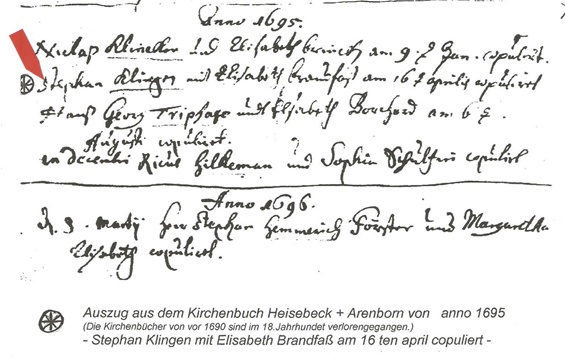 Anno 1695.
Klincker Elisabeth am 9. Jan. copulirt.
Stephan Klingen mit Elisabeth am 16 t aprilis copulirt
Hans Georg Triphage undt Elisabeth Borchard am 6 t.
Augusti copulirt.
Hilkeman und Sophia copulirt
Anno 1696.
d. 3. Martij Herr Stephan Hemmerich Förster und Margaretha
Elisabeth copulirt.
Auszug aus dem Kirchenbuch Heisebeck + Arenborn von anno 1695
(Die Kirchenbücher von vor 1690 sind im 18.Jahrhundert verlorengegangen.)
- Stephan Klingen mit Elisabeth Brandfaß am 16 ten april copuliert -